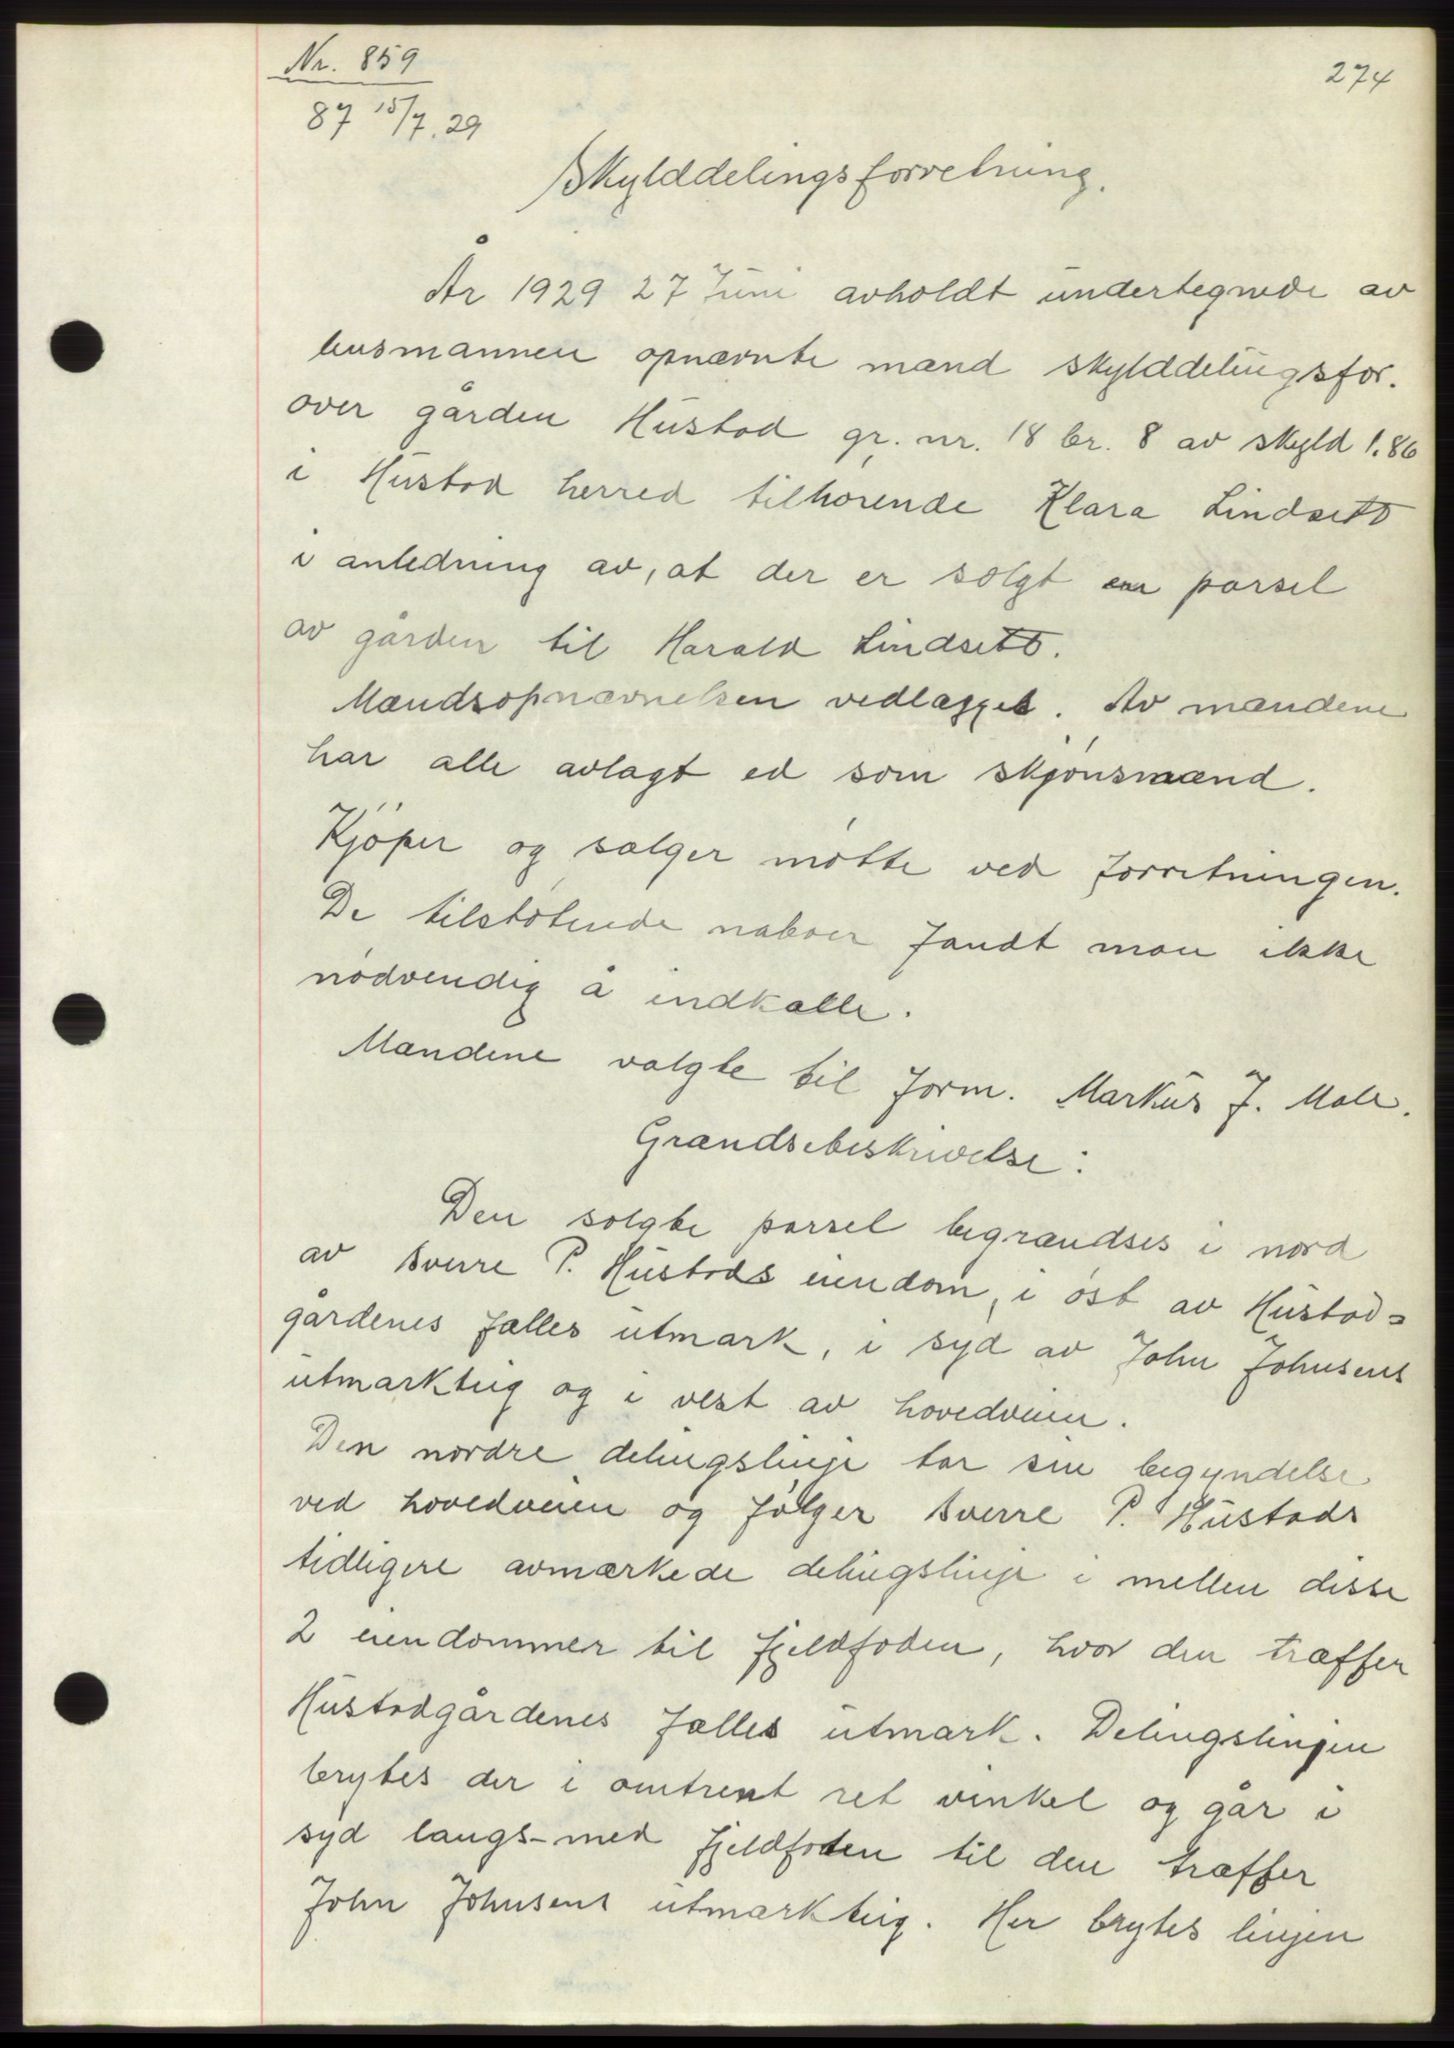 Nr. 859
274
87 15/7. 29
Skylddelingsforretning.
År 1929 27 Juni avholdt undertegnede av
lensmannen opnævnte mænd skylddelingsfor.
over gården Hustad gr. nr. 18 br. 8 av skyld 1.86
i Hustad herred tilhørende Klara Lindseth
i anledning av, at der er solgt en parsel
av gården til Harald Lindseth.
Mandsopnævnelsen vedlægges. Av mændene
har alle avlagt ed som skjønsmænd.
Kjøper og sælger møtte ved forretningen.
De tilstøtende naboer fandt man ikke
nødvendig å indkalle.
Mændene valgte til form. Markus J. Male.
Grændsebeskrivelse:
Den solgte parsel begrændses i nord
av Sverre P. Hustads eiendom, i øst av Hustad=
gårdenes fælles utmark, i syd av John Johnsens
utmarkteig og i vest av hovedveien.
Den nordre delingslinje tar sin begyndelse
ved hovedveien og følger Sverre P. Hustads
tidligere avmærkede delingslinje i mellen disse
2 eiendommer til fjeldfoden, hvor den træffer
Hustadgårdenes fælles utmark. Delingslinjen
brytes der i omtrent ret vinkel og går i
syd langs-med fjeldfoten til den træffer
John Johnsens utmarkteig. Her brytes linjen